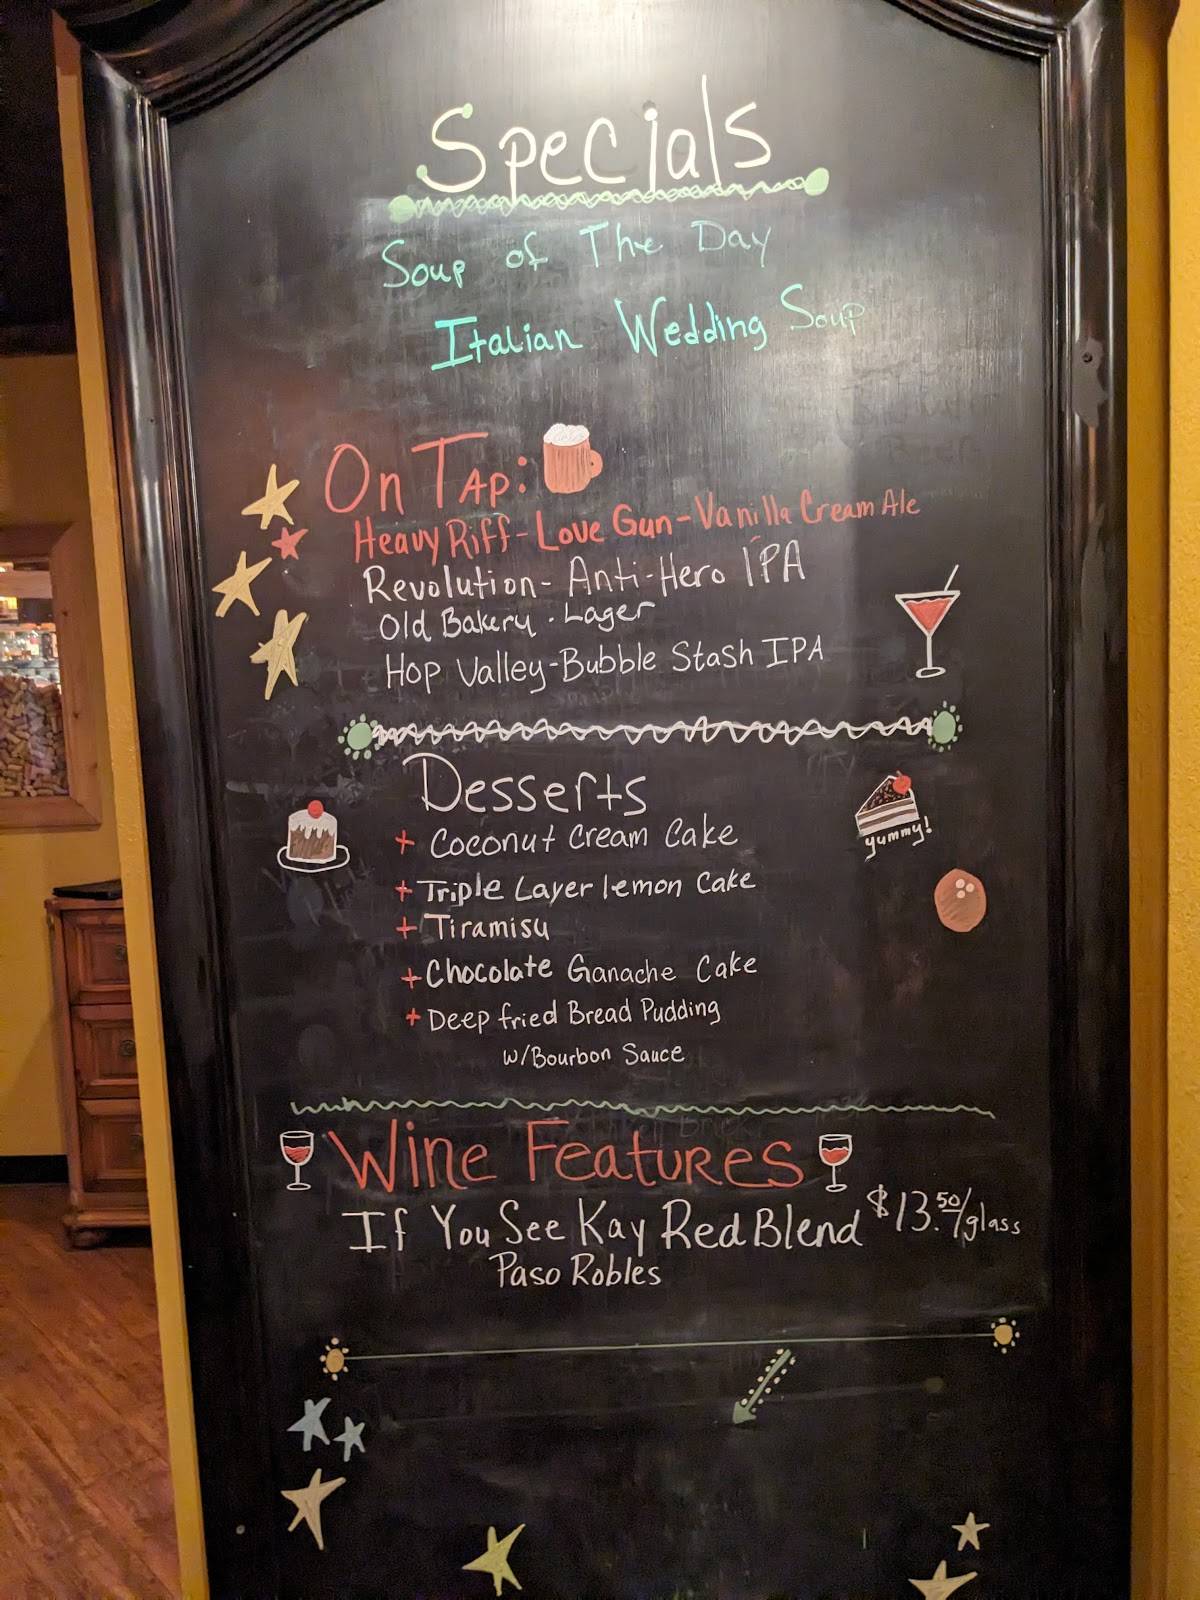 Specials
Soup of The Day
Italian Wedding Soup
On Tap:
Heavy Riff-Love Gun-Vanilla Cream Ale
Revolution- Anti-Hero IPA
Old Bakery - Lager
Hop Valley-Bubble Stash IPA
Desserts
+ Coconut Cream Cake
yummy!
+ Triple Layer lemon Cake
+ Tiramisu
+ Chocolate Ganache Cake
+ Deep fried Bread Pudding
w/Bourbon Sauce
Wine Features
If You See Kay Red Blend $13.50/glass
Paso Robles